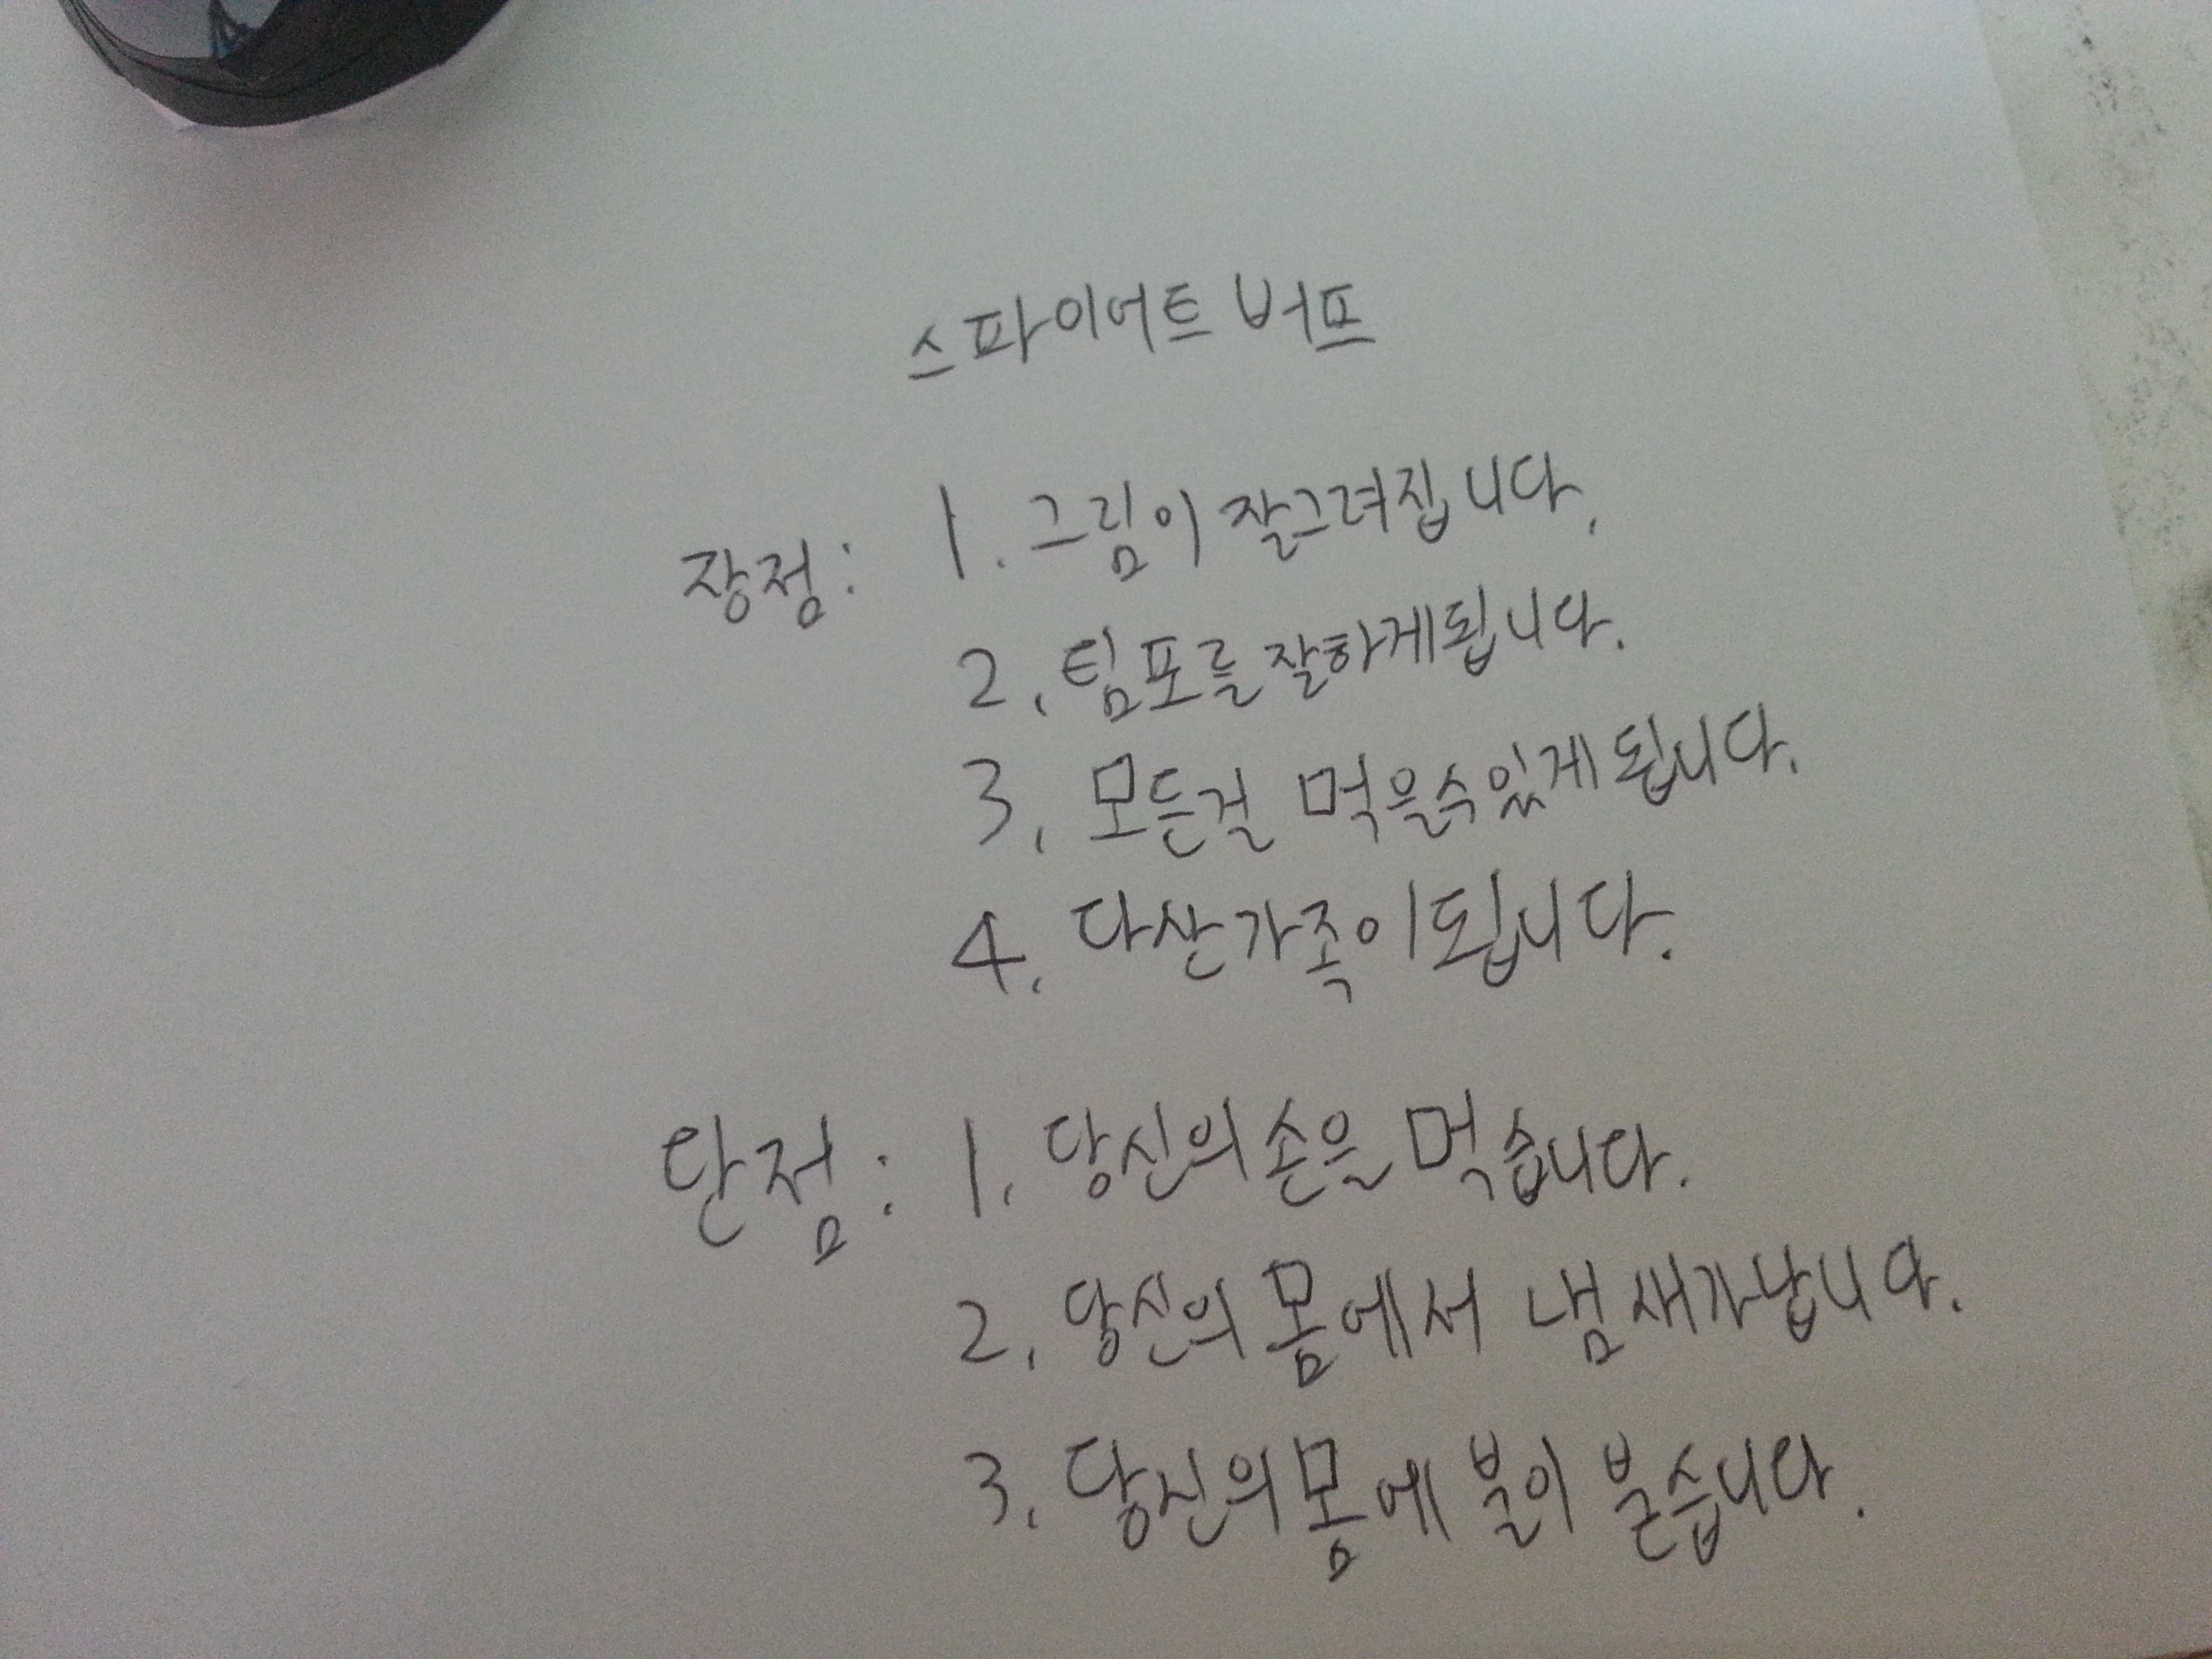 스파이어트 버프
장점: 1. 그림이 잘그려집니다.
2. 팀포를 잘하게됩니다.
3. 모든걸 먹을수있게 됩니다.
4. 다산가족이됩니다.
단점: 1. 당신의 손을 먹습니다.
2. 당신의 몸에서 냄새가납니다.
3. 당신의 몸에 불이 붙습니다.